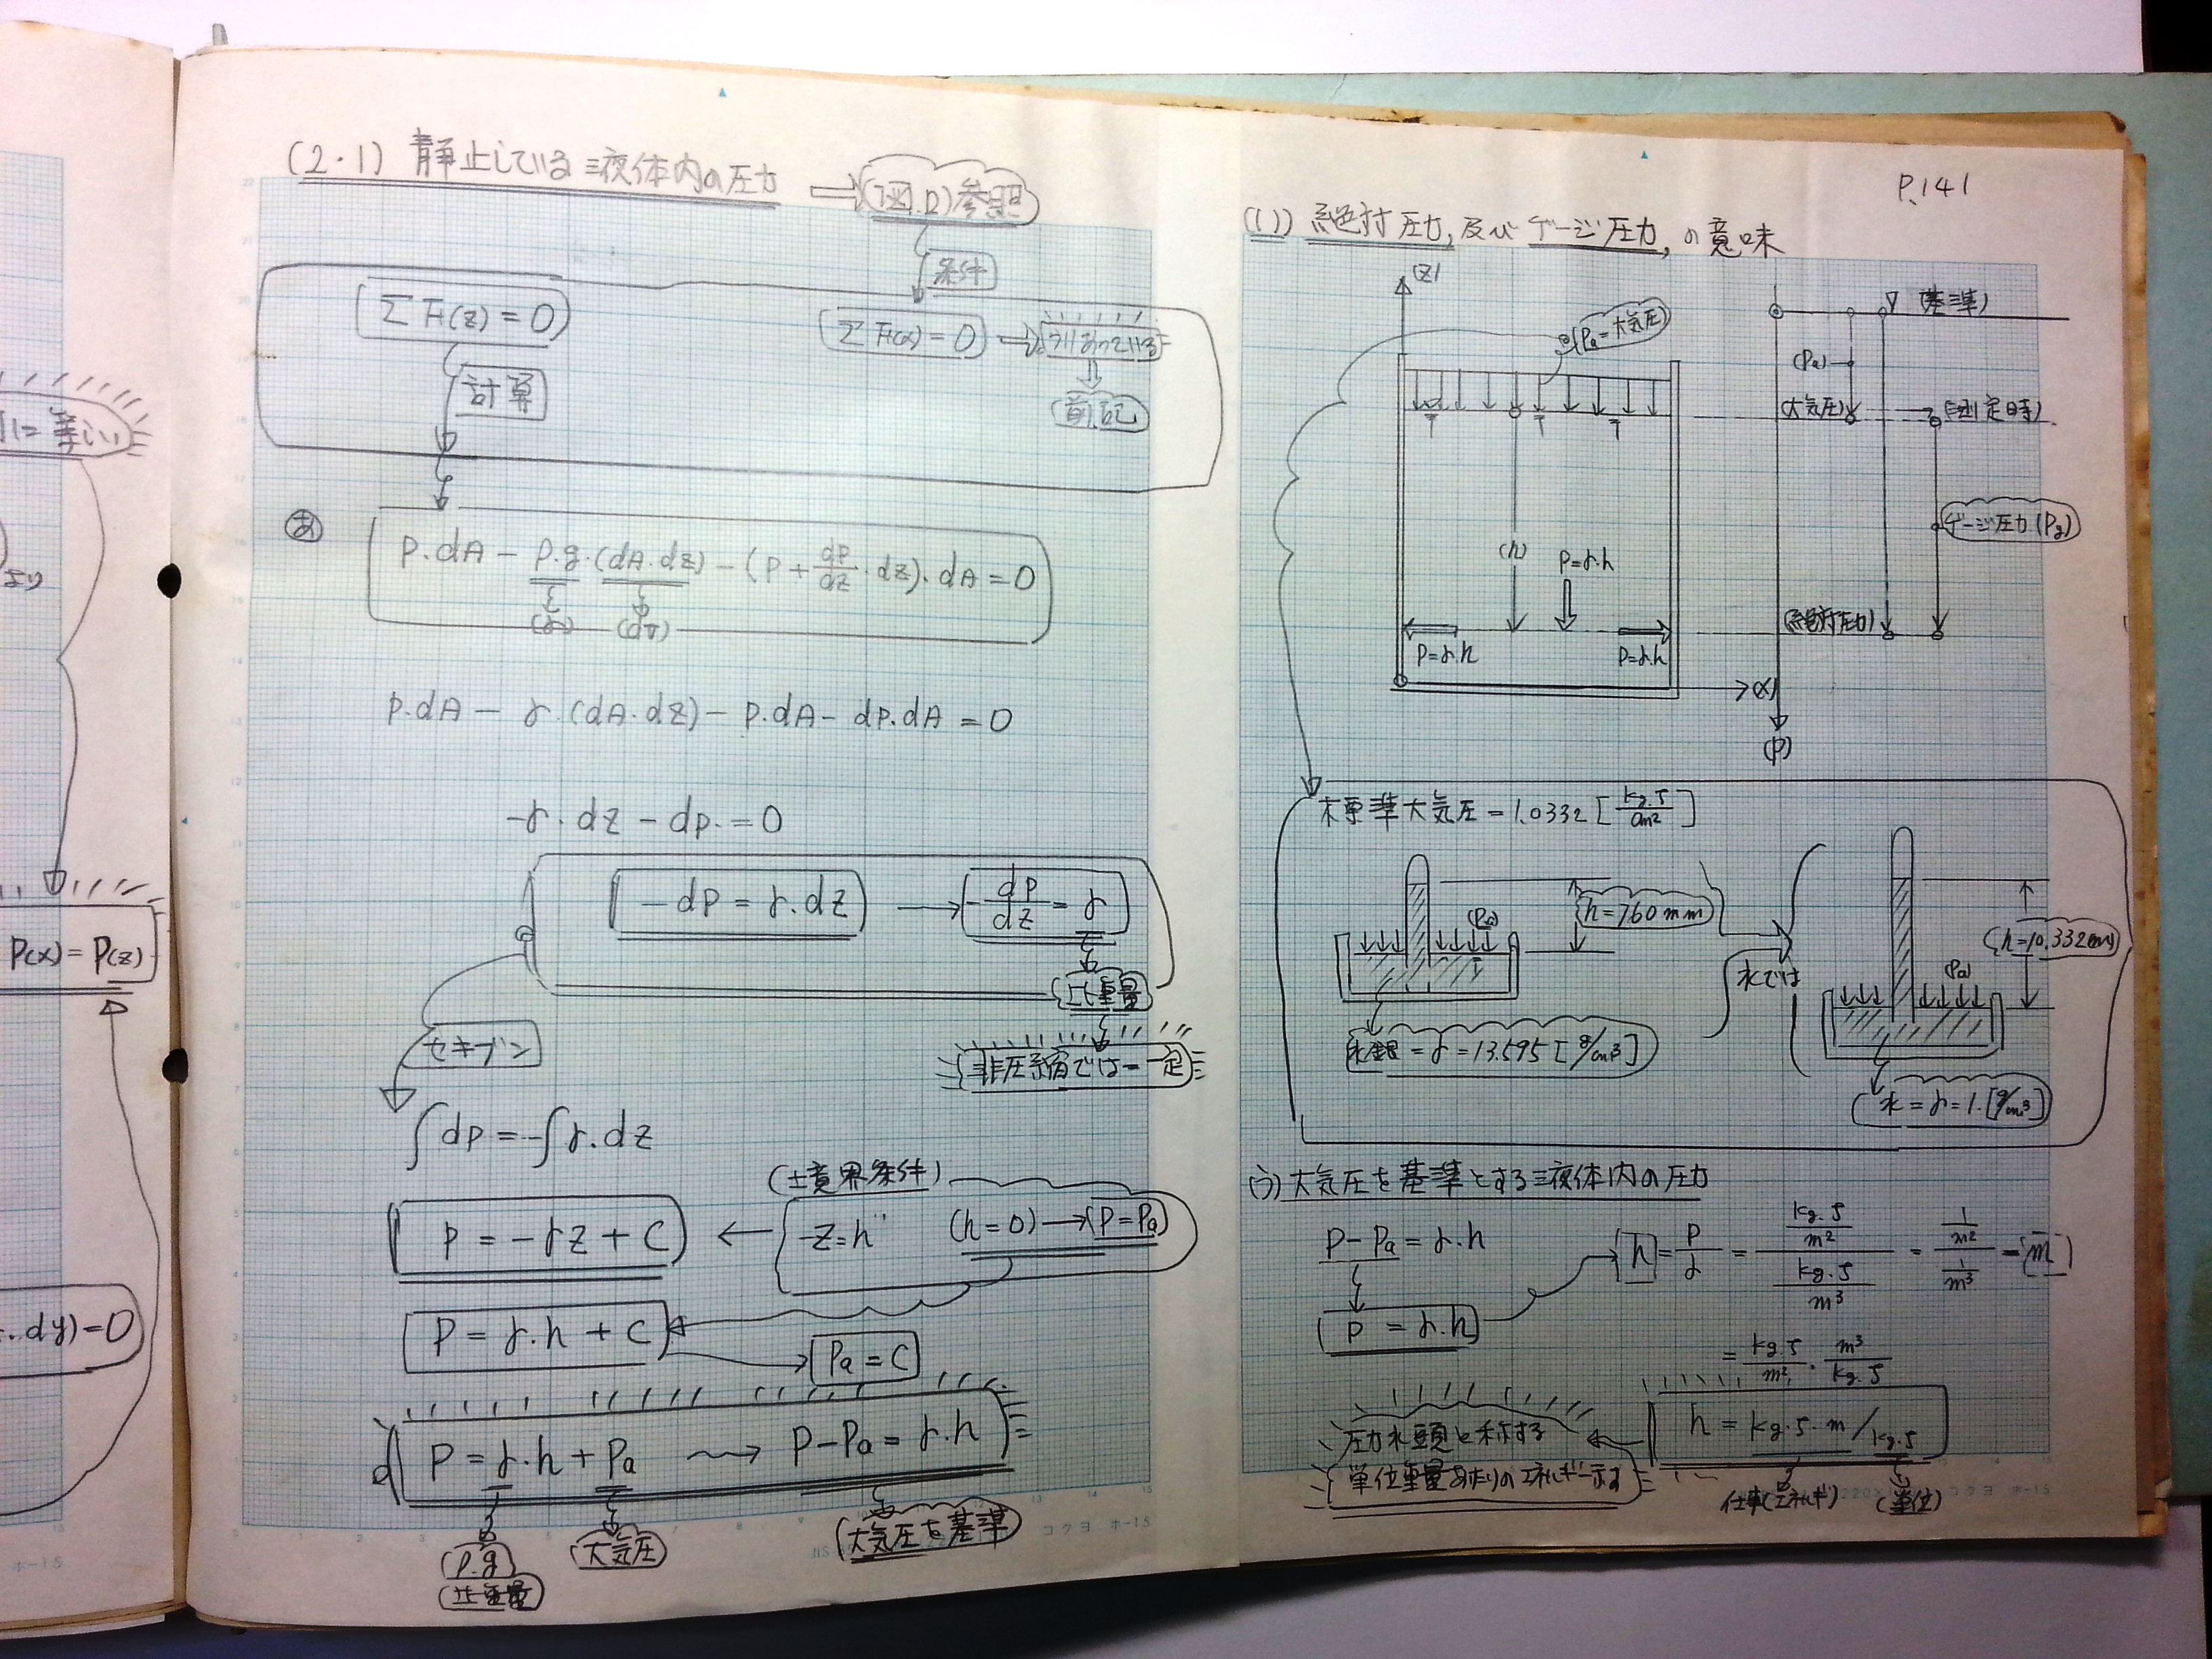 に等しい
より
P(x)=P(z)
.dy)=0
(2・1) 静止している液体内の圧力 ⇒ (図.D)参照
条件
ΣF(z)=0
ΣF(x)=0 → つりあっている
計算
前記
あ
P.dA − ρ.g.(dA.dz) − (P + dP/dz・dz).dA = 0
(γ) (dV)
P.dA − γ.(dA.dz) − P.dA − dP.dA = 0
−γ.dz − dp. = 0
−dP = γ.dz → −dP/dz = γ
比重量
セキブン
非圧縮では一定
∫dP = −∫γ.dz
(境界条件)
P = −γz + C ← −z=h (h=0)→(P=Pa)
P = γ.h + C
Pa = C
P = γ.h + Pa 〜→ P−Pa = γ.h
ρ.g
比重量
大気圧
大気圧を基準
コクヨ ホ-15
P.141
(1)) 絶対圧力,及びゲージ圧力,の意味
(z)
(Pa=大気圧)
(基準)
(Pa)
(大気圧) (測定時)
ゲージ圧力(Pg)
(h)
P=γ.h
(絶対圧力)
P=γ.h P=γ.h
(x)
(P)
標準大気圧=1.0332[kg.f/cm²]
h=760mm
(Pa)
h=10.332(m)
(Pa)
水では
水銀=γ=13.595[g/cm³]
水=γ=1.[g/cm³]
う) 大気圧を基準とする液体内の圧力
P−Pa = γ.h
h = P/γ = (kg.f/m²)/(kg.f/m³) = (1/m²)/(1/m³) = [m]
P = γ.h
= kg.f/m² . m³/kg.f
h = kg.f.m/kg.f
圧力水頭と称する
単位重量あたりのエネルギー示す
仕事(エネルギ) (単位)
コクヨ ホ-15
ホ-15